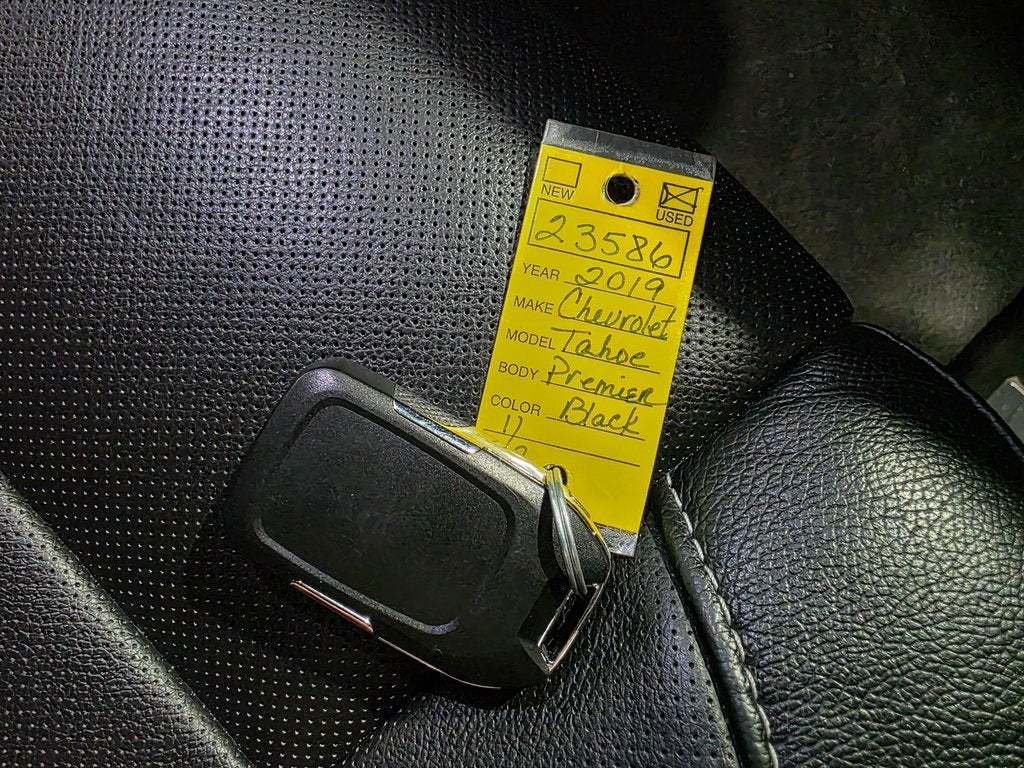 NEW USED
23586
YEAR 2019
MAKE Chevrolet
MODEL Tahoe
BODY Premier
COLOR Black